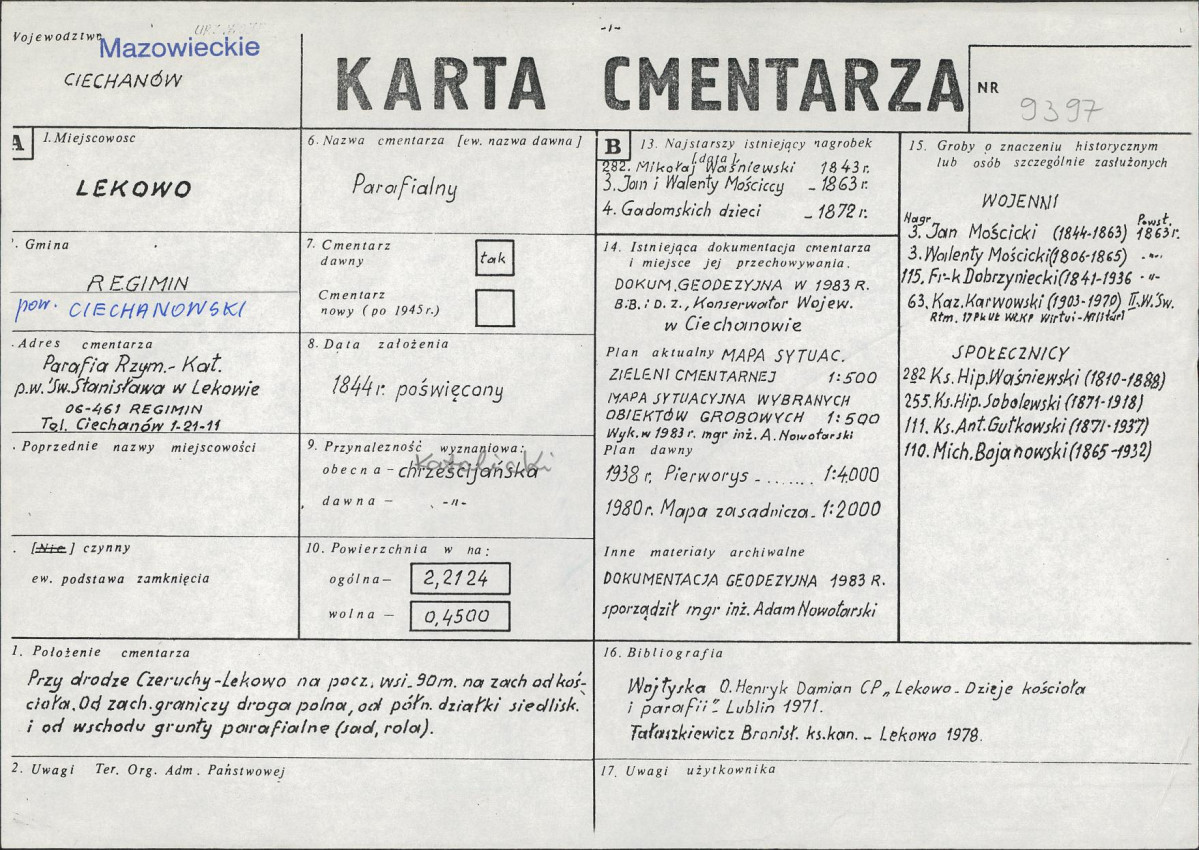 -1-
Województwo
Mazowieckie
CIECHANÓW
KARTA CMENTARZA
NR
9397
A
1. Miejscowosc
LEKOWO
. Gmina
REGIMIN
pow. CIECHANOWSKI
. Adres cmentarza
Parafia Rzym.- Kat.
p.w. Św. Stanisława w Lekowie
06-461 REGIMIN
Tel. Ciechanów 1-21-11
. Poprzednie nazwy miejscowości
. [Nie] czynny
ew. podstawa zamknięcia
6. Nazwa cmentarza [ew. nazwa dawna]
Parafialny
7. Cmentarz
dawny
tak
Cmentarz
nowy (po 1945 r.)
8. Data założenia
1844 r. poświęcony
9. Przynależność wyznaniowa:
katolicki
obecna – chrześcijańska
dawna – -"-
10. Powierzchnia w ha:
ogólna – 2,2124
wolna – 0,4500
B
13. Najstarszy istniejący nagrobek
[data]
282. Mikołaj Waśniewski 1843 r.
3. Jan i Walenty Mościccy - 1863 r.
4. Gadomskich dzieci - 1872 r.
14. Istniejąca dokumentacja cmentarza
i miejsce jej przechowywania.
DOKUM. GEODEZYJNA W 1983 R.
B.B. i D.Z., Konserwator Wojew.
w Ciechanowie
Plan aktualny MAPA SYTUAC.
ZIELENI CMENTARNEJ 1:500
MAPA SYTUACYJNA WYBRANYCH
OBIEKTÓW GROBOWYCH 1:500
Wyk. w 1983 r. mgr inż. A. Nowotarski
Plan dawny
1938 r. Pierworys - ....... 1:4000
1980 r. Mapa zasadnicza - 1:2000
Inne materiały archiwalne
DOKUMENTACJA GEODEZYJNA 1983 R.
sporządził mgr inż. Adam Nowotarski
15. Groby o znaczeniu historycznym
lub osób szczególnie zasłużonych
WOJENNI
Nagr. Powst.
3. Jan Mościcki (1844-1863) 1863 r.
3. Walenty Mościcki (1806-1865) -"-
115. Fr-k Dobrzyniecki (1841-1936 -"-
63. Kaz. Karwowski (1903-1970) II. W. Św.
Rtm. 17 PkUł WLKP Wirtui-Militari
SPOŁECZNICY
282 Ks. Hip. Waśniewski (1810-1888)
255. Ks. Hip. Sobolewski (1871-1918)
111. Ks. Ant. Gutkowski (1871-1937)
110. Mich. Bojanowski (1865-1932)
1. Położenie cmentarza
Przy drodze Czeruchy-Lekowo na pocz. wsi. 90 m. na zach od koś-
cioła. Od zach. graniczy droga polna, od półn. działki siedlisk.
i od wschodu grunty parafialne (sad, rola).
2. Uwagi Ter. Org. Adm. Państwowej
16. Bibliografia
Wojtyska O. Henryk Damian CP „Lekowo - Dzieje kościoła
i parafii" - Lublin 1971.
Tałaszkiewicz Bronisł. ks. kan. - Lekowo 1978.
17. Uwagi użytkownika